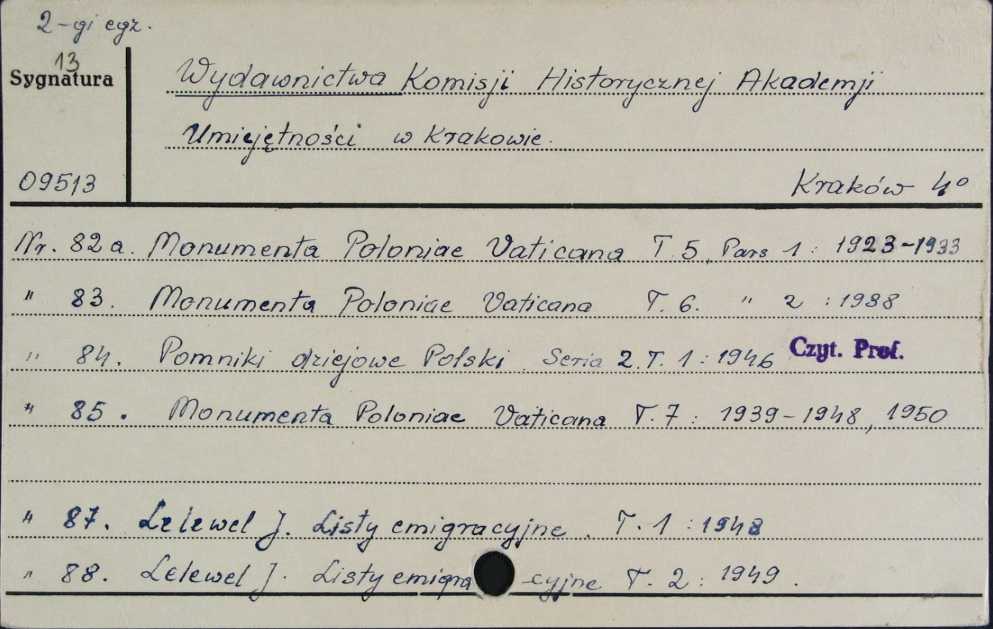 2-gi egz.
13
Sygnatura
Wydawnictwa Komisji Historycznej Akademji
Umiejętności w Krakowie.
09513
Kraków 4°
Nr. 82a. Monumenta Poloniae Vaticana T.5, Pars 1 : 1923-1933
" 83. Monumenta Poloniae Vaticana T. 6. " 2 : 1938
" 84. Pomniki dziejowe Polski. Seria 2. T. 1 : 1946 Czyt. Prof.
" 85. Monumenta Poloniae Vaticana T. 7 : 1939-1948, 1950
" 87. Lelewel J. Listy emigracyjne. T. 1 : 1948
" 88. Lelewel J. Listy emigra-cyjne T. 2 : 1949.